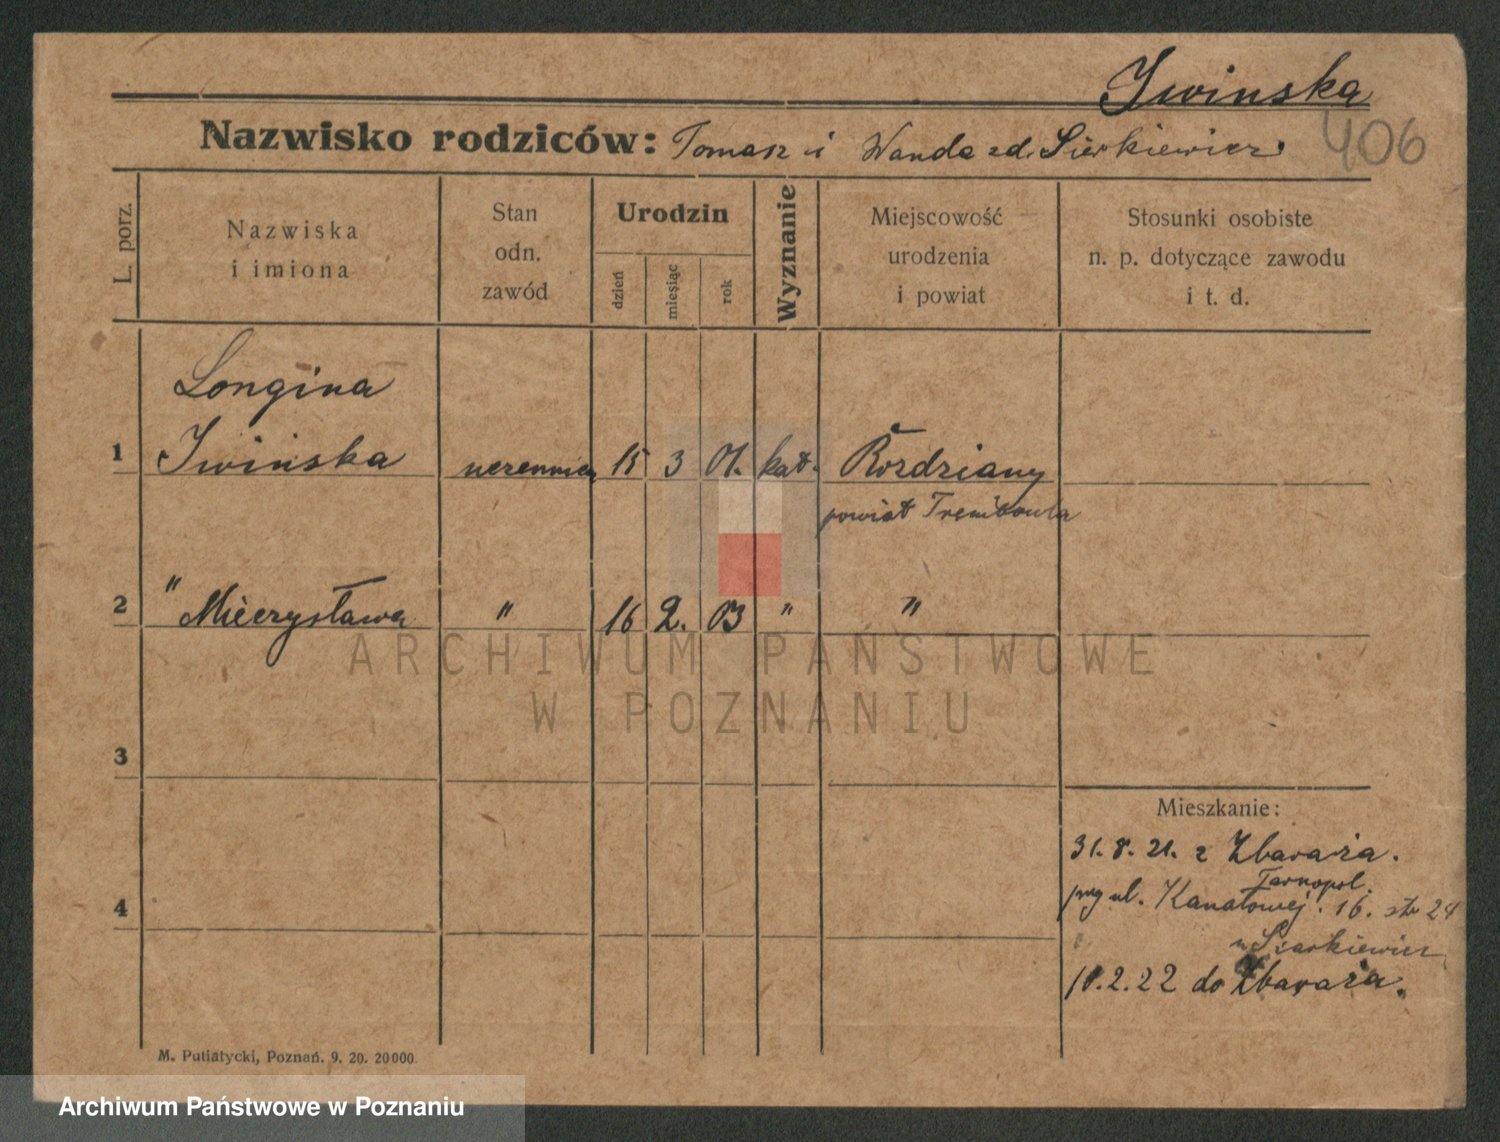 Iwinska
406
Nazwisko rodziców: Tomasz i Wanda zd. Sierkiewicz
L. porz.
Nazwiska
i imiona
Stan
odn.
zawód
Urodzin
dzień
miesiąc
rok
Wyznanie
Miejscowość
urodzenia
i powiat
Stosunki osobiste
n. p. dotyczące zawodu
i t. d.
Longina
1 Iwińska uczennica 15 3 01. kat. Rozdziany
powiat Trembowla
2 " Mieczysława " 16 2. 03 " "
3
4
Mieszkanie:
31.8.21. z Zbaraża.
Tarnopol.
ul. Kanałowej. 16. 24
u Siarkiewicz
2.22 do Zbaraża.
M. Putiatycki, Poznań. 9. 20. 20000.
ARCHIWUM PAŃSTWOWE
W POZNANIU
Archiwum Państwowe w Poznaniu